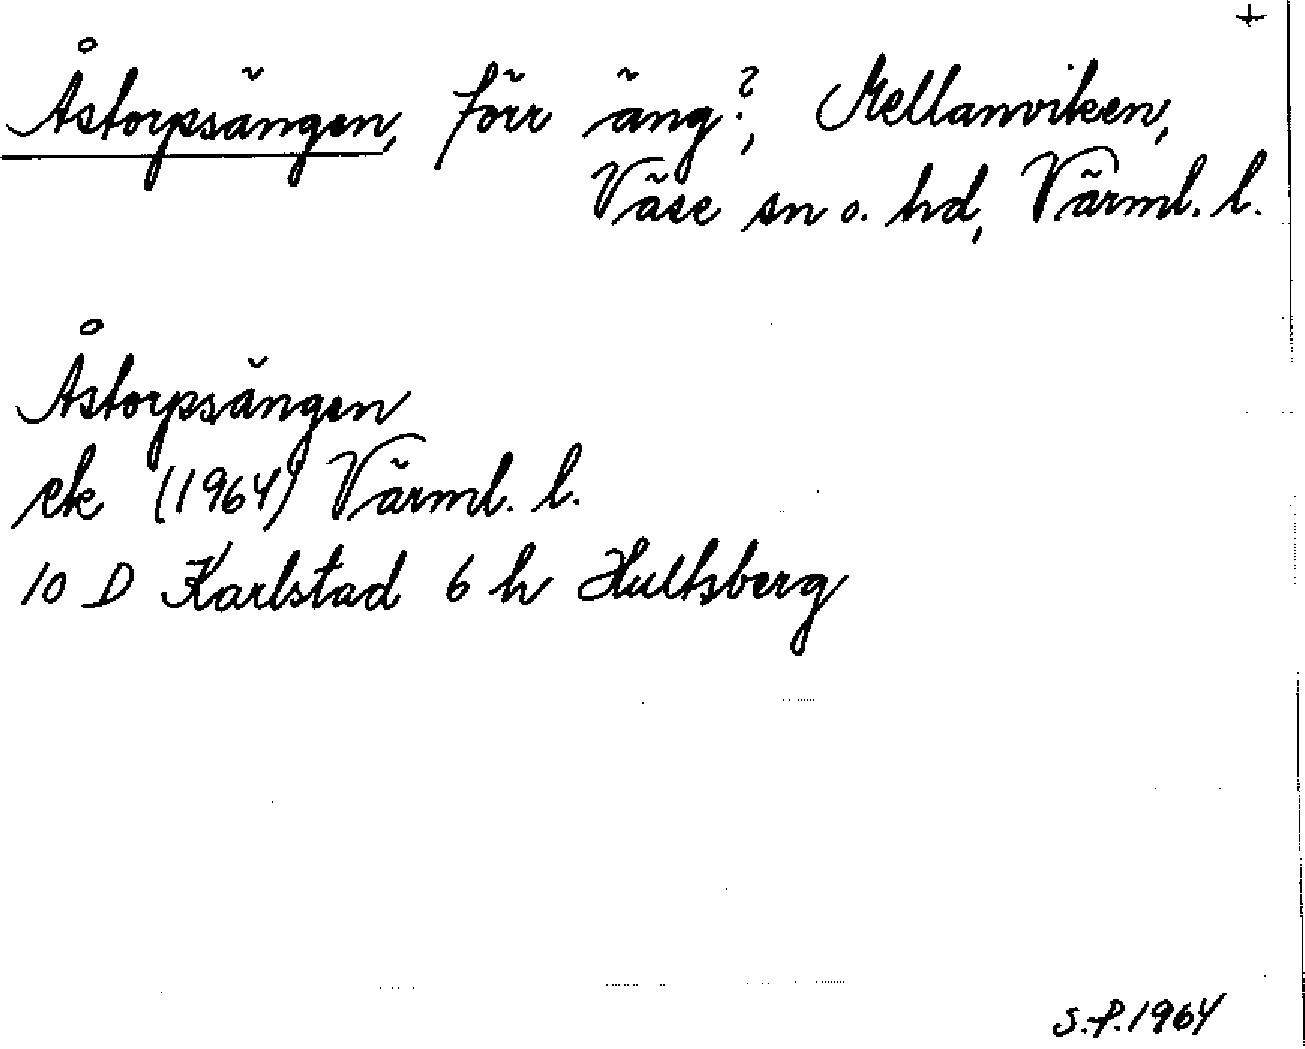 +
Åstorpsängen, förr äng?, Mellanviken,
Väse sn o. hd, Värml. l.
Åstorpsängen
ek (1964) Värml. l.
10 D Karlstad 6 h Hultsberg
S.-P. 1964